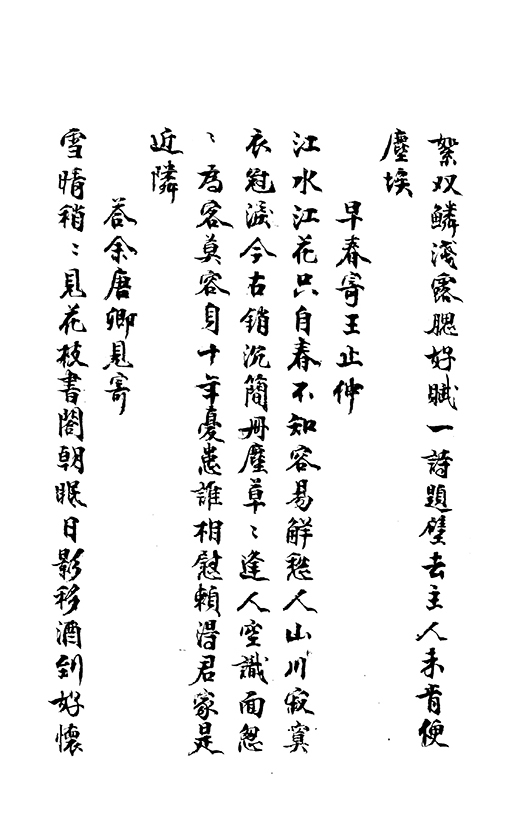 絮双鱗淺露腮好賦一詩題壁去主人未肯便
塵埃
早春寄王止仲
江水江花只自春不知容易解愁人山川寂寞
衣冠淺今古銷沉簡冊塵草〻逢人空識面怱
〻為客莫容身十年憂患誰相慰賴得君家是
近隣
答余唐卿見寄
雪晴稍〻見花枝書閣朝眠日影移酒到好懷